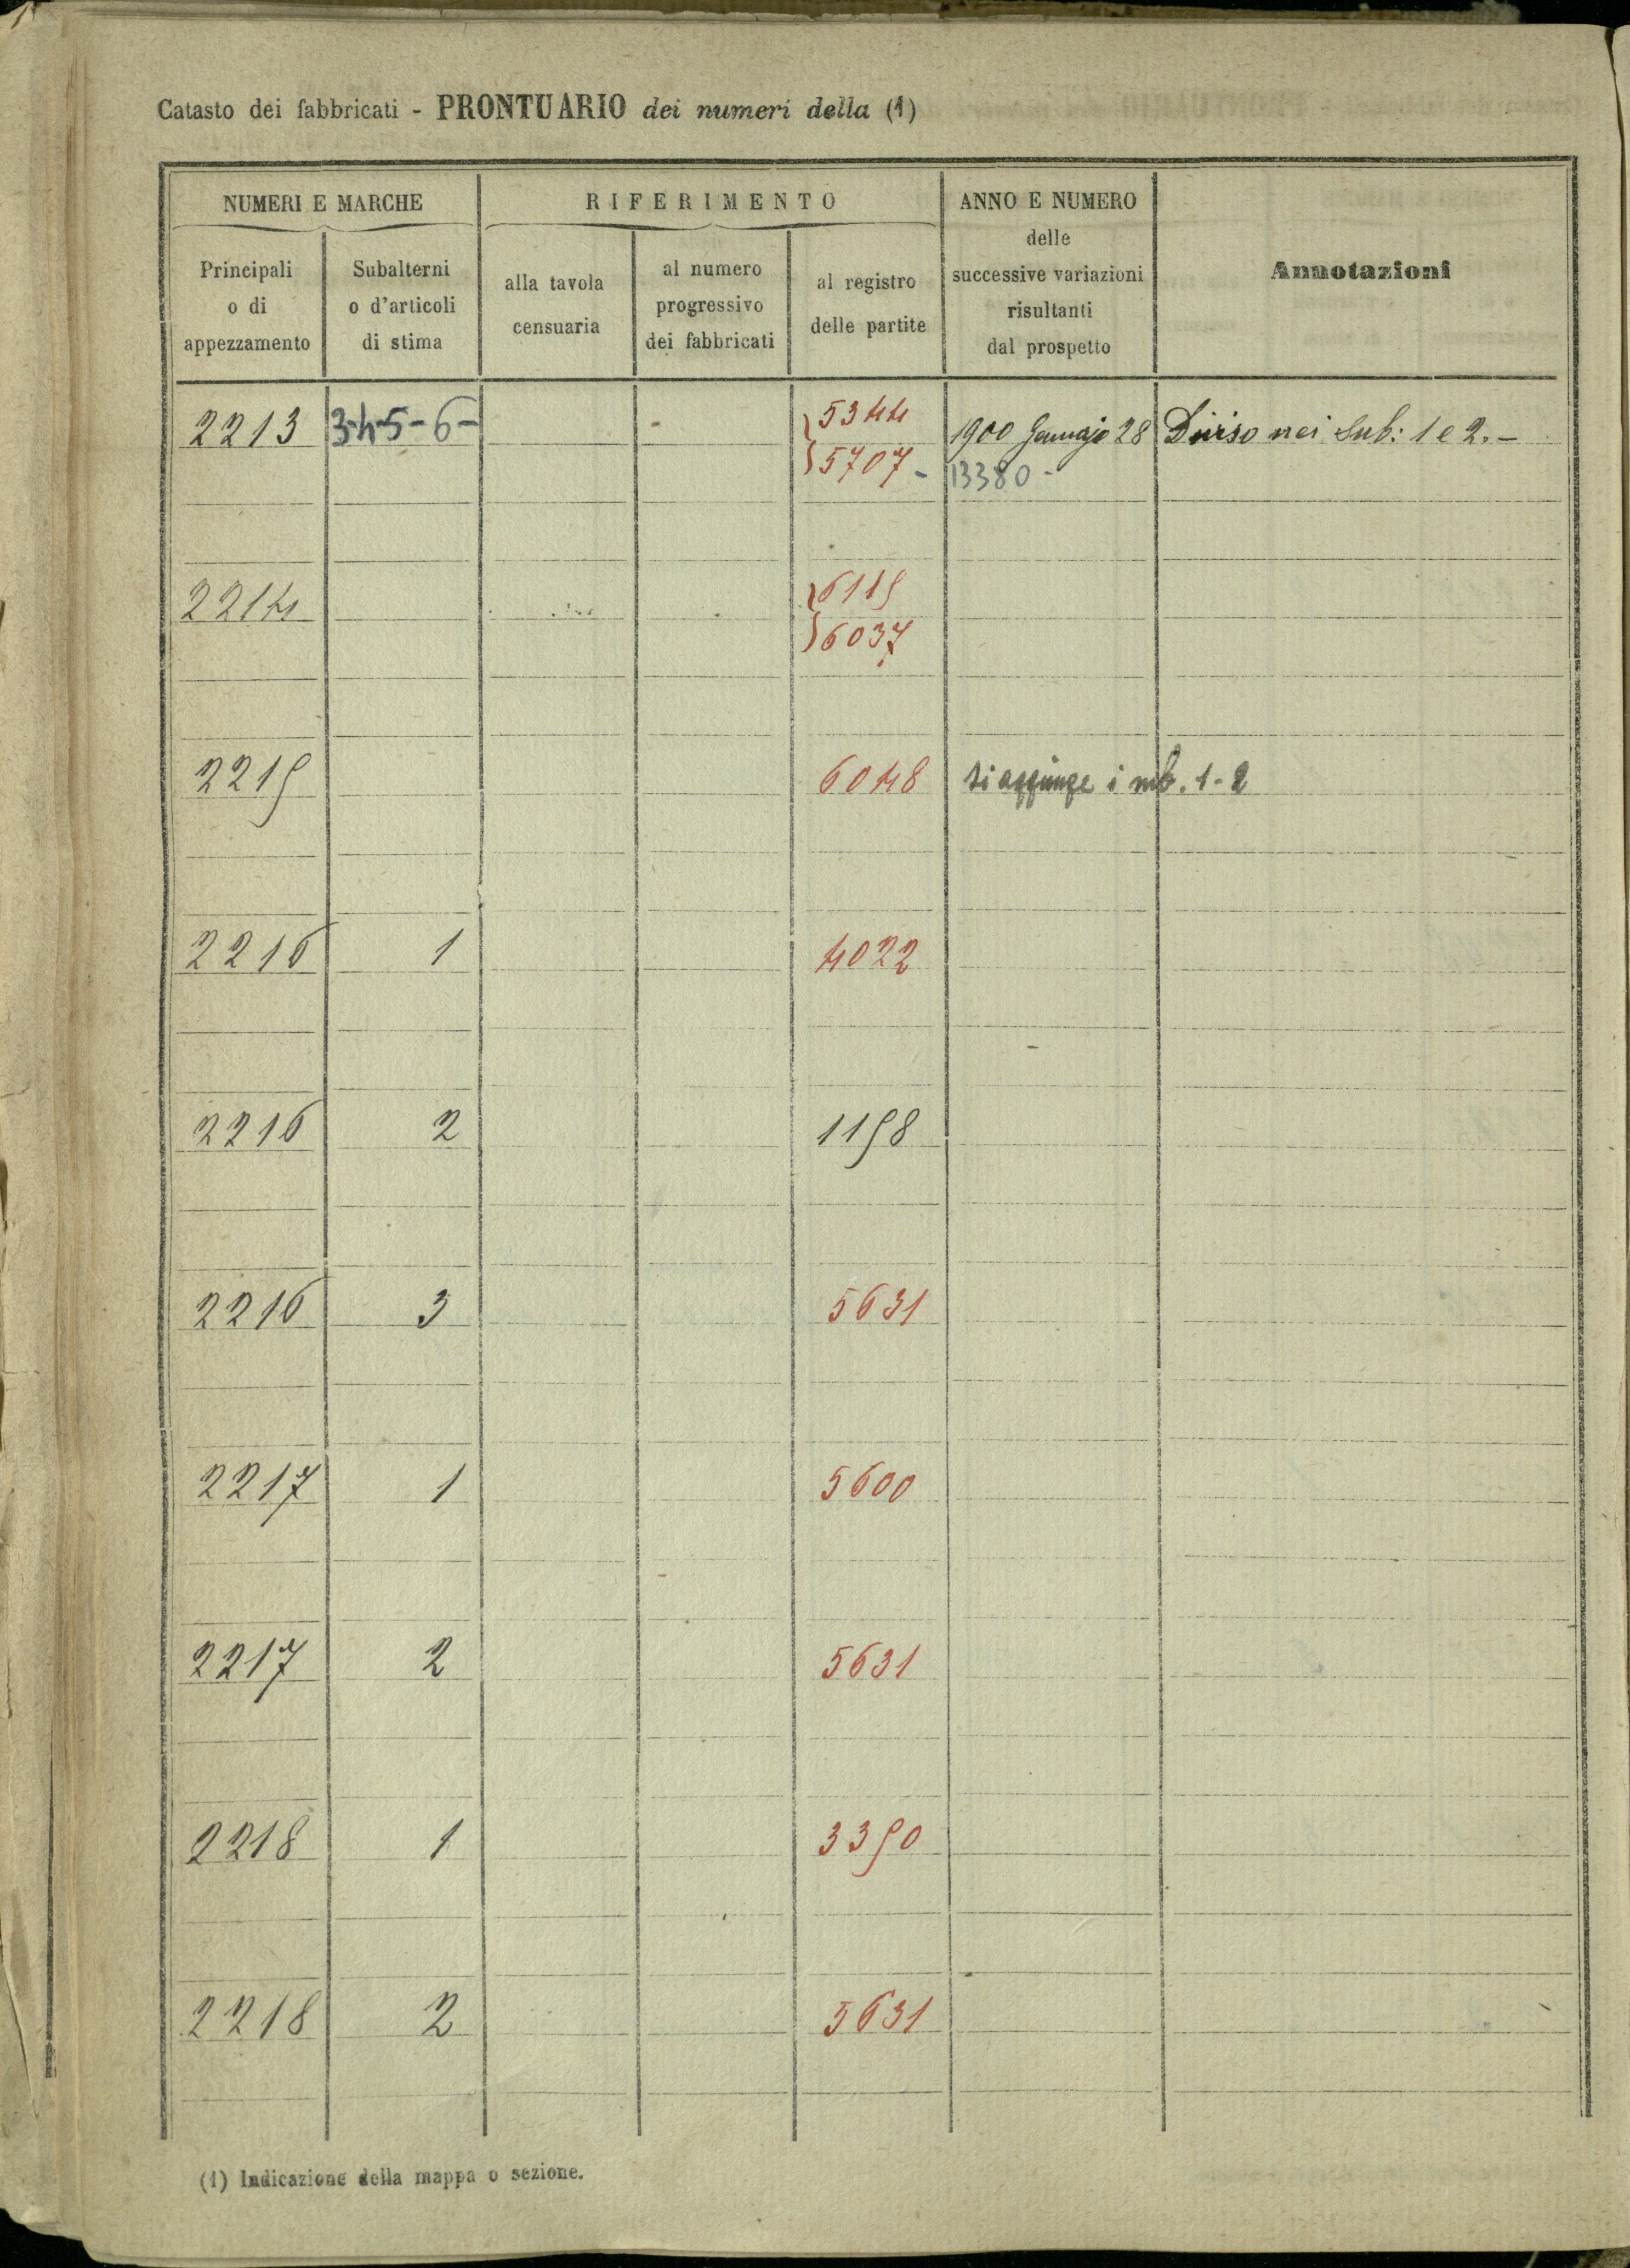 Catasto dei fabbricati - PRONTUARIO dei numeri della (1)
NUMERI E MARCHE
RIFERIMENTO
ANNO E NUMERO
delle
successive variazioni
risultanti
dal prospetto
Annotazioni
Principali
o di
appezzamento
Subalterni
o d'articoli
di stima
alla tavola
censuaria
al numero
progressivo
dei fabbricati
al registro
delle partite
2213 3-4-5-6- 5344 1900 Gennajo 28 Diviso nei Sub: 1 e 2.-
5707 - 13380 -
2214 6115
6037
2215 6048 si aggiunge i sub. 1-2
2216 1 4022
2216 2 1158
2216 3 5631
2217 1 5600
2217 2 5631
2218 1 3350
2218 2 5631
(1) Indicazione della mappa o sezione.